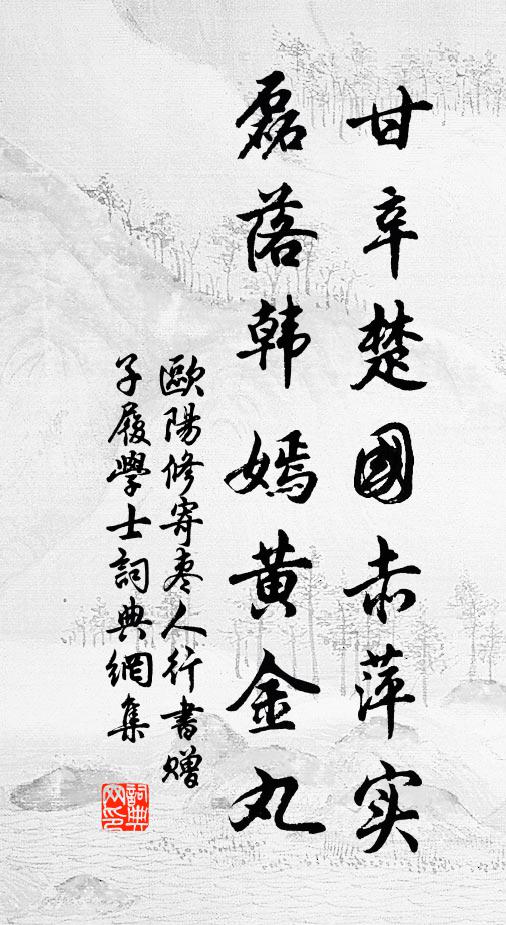 甘辛楚國赤萍实
磊落韩嫣黄金丸
歐陽修寄棗人行書贈
子履學士詞典網集
詞典
网印